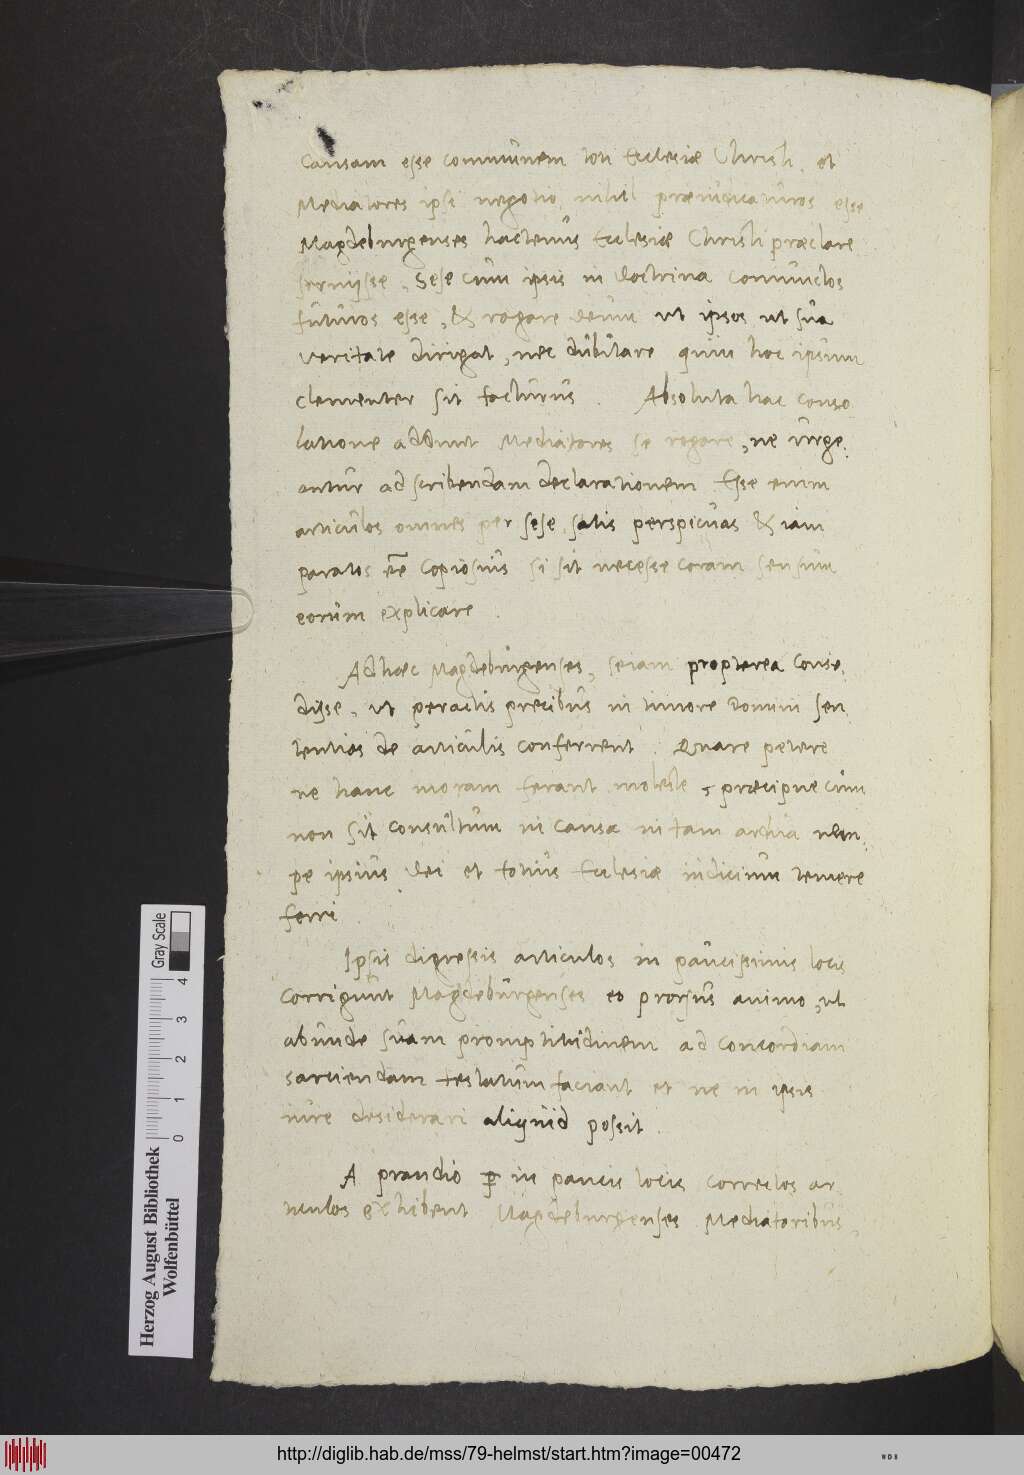 Causam esse communem toti Ecclesiæ Christi, et
Mediatores ipsi negotio nihil præiudicaturos esse
Magdeburgenses hactenus Ecclesiæ Christi præclare
seruijsse, Sese cum ipsis in doctrina coniunctos
futuros esse, & rogare deum ut ipsos ut sua
veritate dirigat, nec dubitare quin hoc ipsum
clementer sit facturus. Absoluta hac conso
latione addunt Mediatores se rogare, ne urge,
antur ad scribendam declarationem Esse enim
articulos omnes per sese satis perspicuas & iam
paratos copiosius si sit necesse coram sensum
eorum explicare.
Ad hæc Magdeburgenses, seiam propterea conse,
disse, ut peractis precibus in timore Domini sen
tentias de articulis conferrent. Quare petere
ne hanc moram ferant moleste, præcipue cum
non sit consultum in causa in tam ardua nem,
pe ipsius Dei et totius Ecclesiæ iudicium temere
ferri.
Ipsis digressis articulos in paucissimis locis
corrigunt Magdeburgenses eo prorsus animo, ut
abunde suam promptitudinem ad concordiam
sarciendam testatum faciant et ne in ipsis
iure desiderari aliquid possit.
A prandio in paucis locis correctos ar
ticulos exhibent Magdeburgenses Mediatoribus
Herzog August Bibliothek
Wolfenbüttel
Gray Scale
0 1 2 3 4
http://diglib.hab.de/mss/79-helmst/start.htm?image=00472
WDB